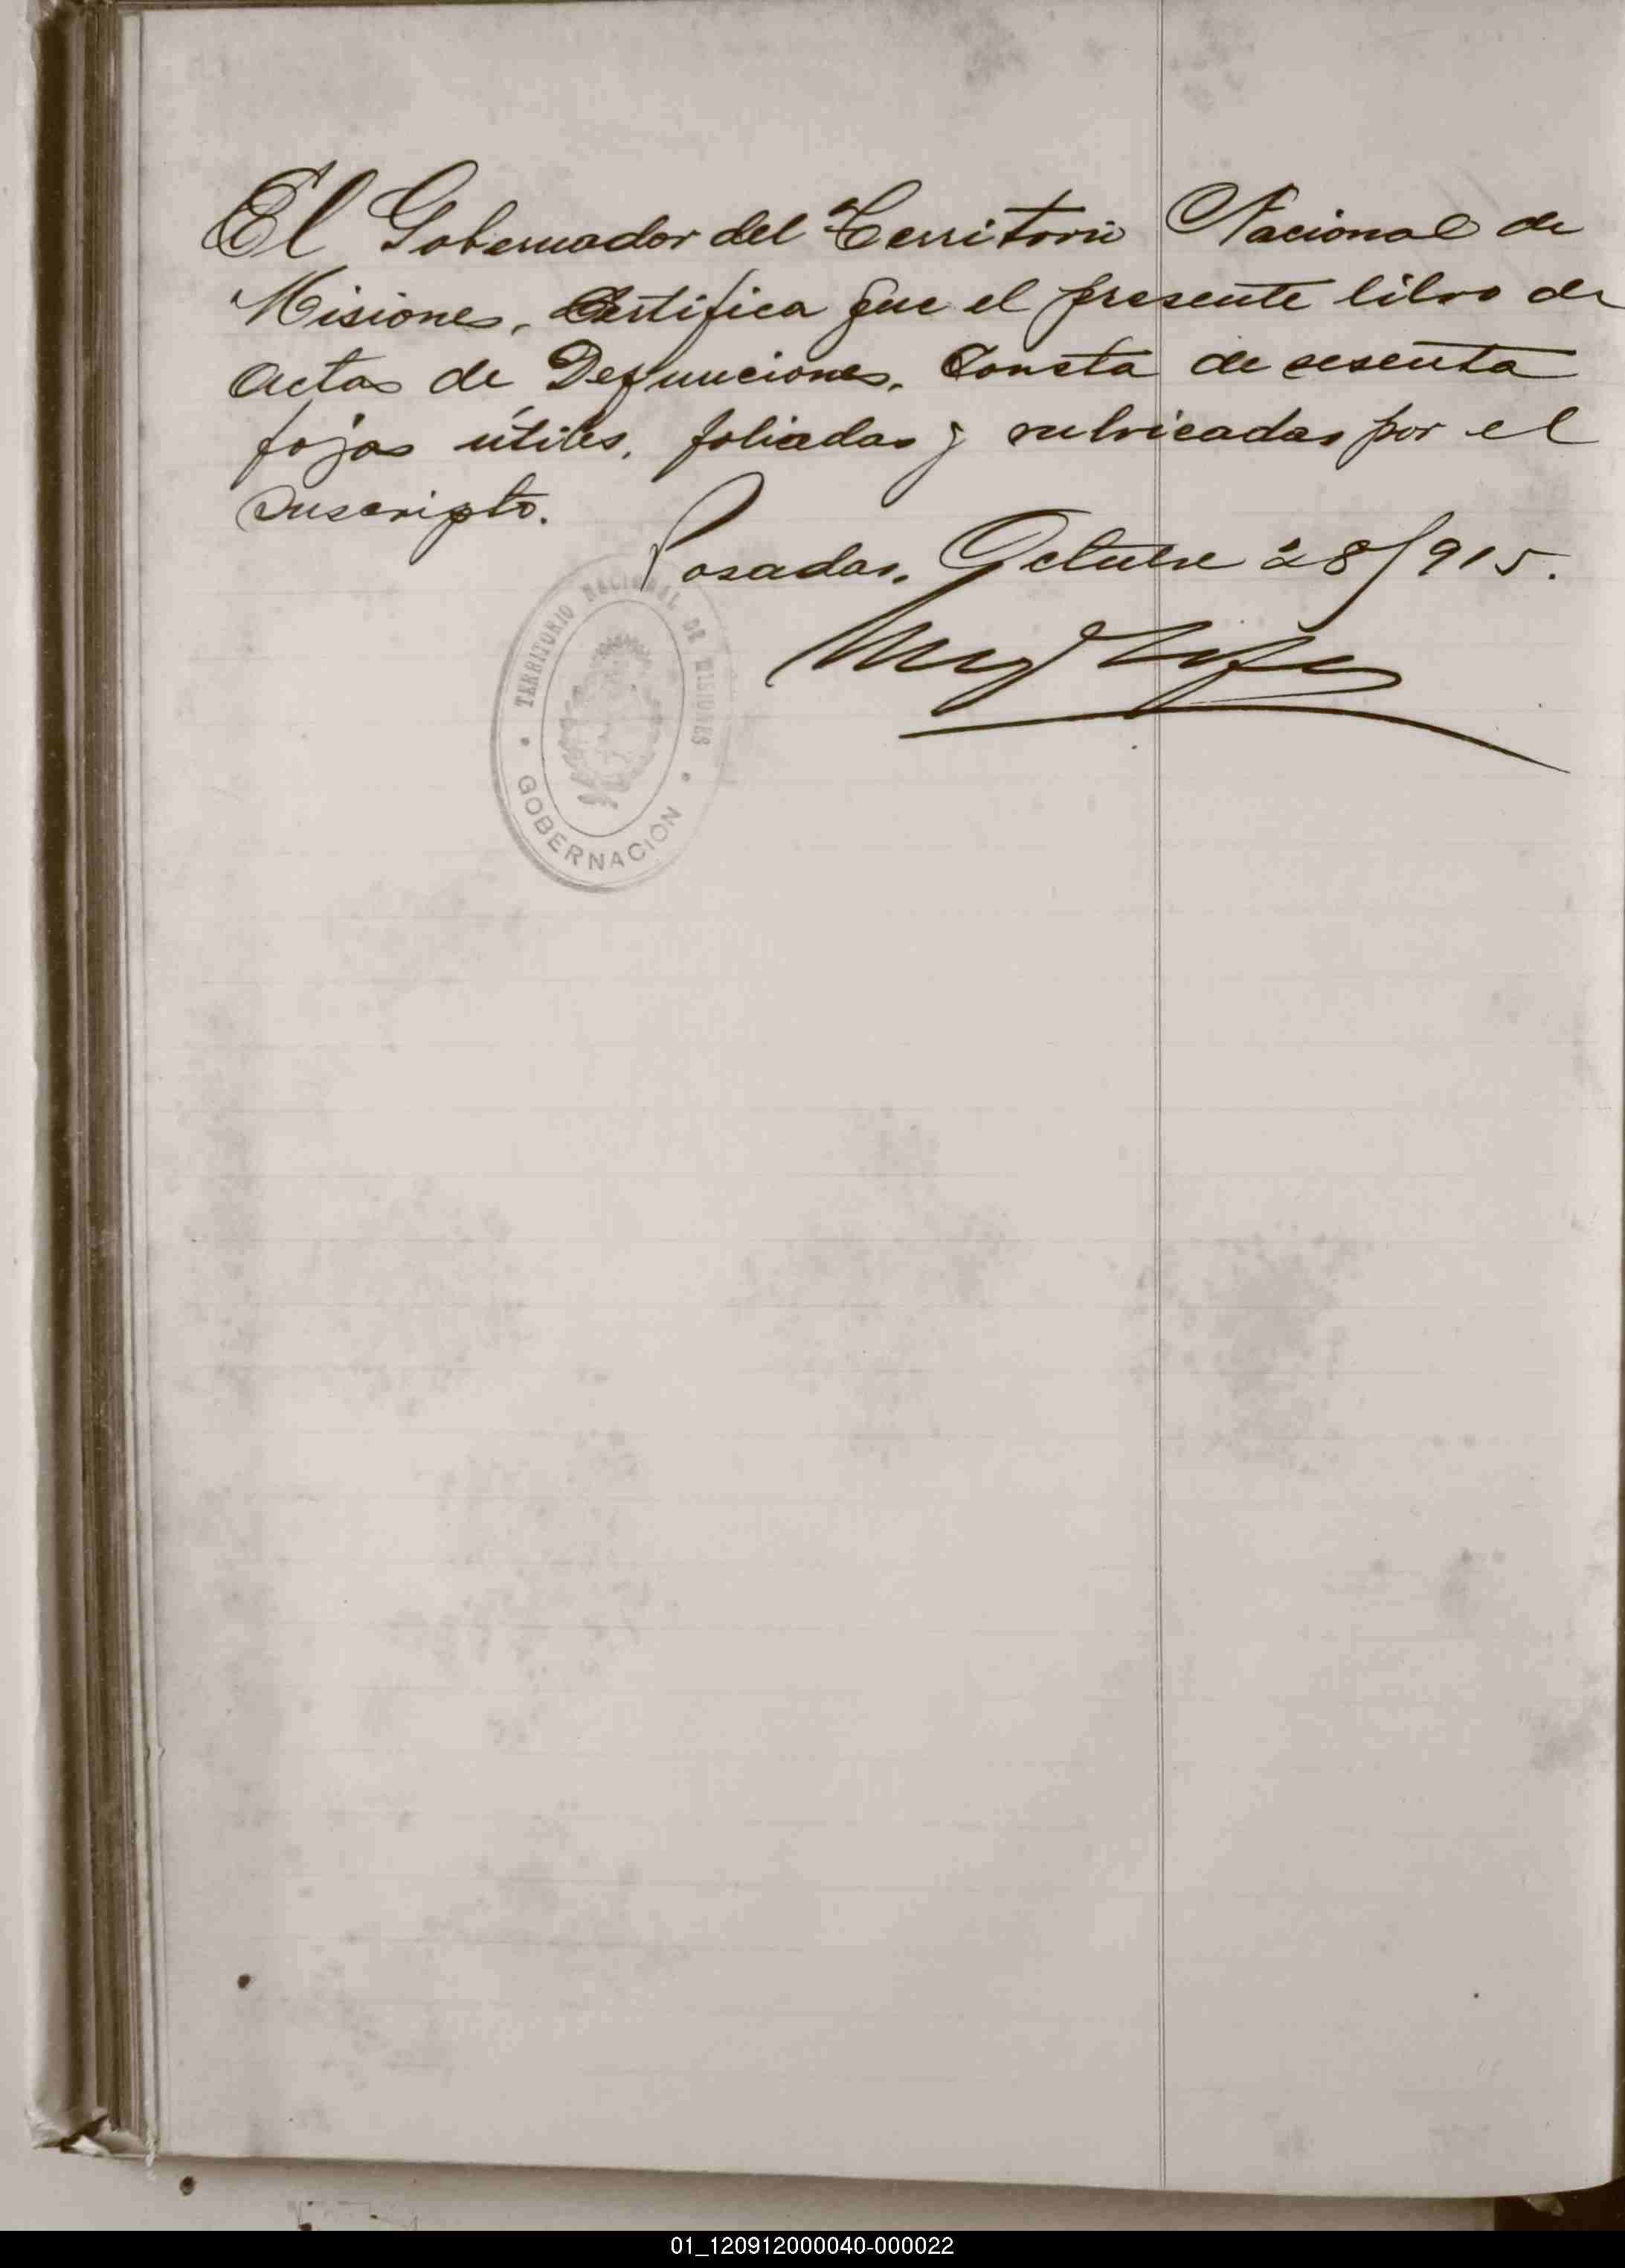 El Gobernador del Territorio Nacional de
Misiones, Certifica que el presente libro de
actas de Defunciones, Consta de sesenta
fojas útiles, foliadas y rubricadas por el
suscripto.
Posadas, Octubre 28/915.
TERRITORIO NACIONAL DE MISIONES
GOBERNACION
01_120912000040-000022